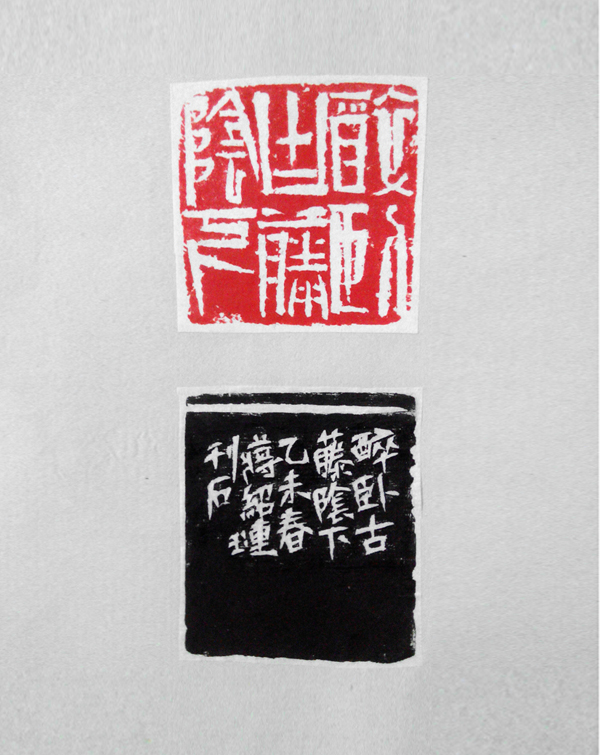 醉卧
古藤
陰下
醉卧古
藤陰下
乙未春
蔣紹璉
刊石